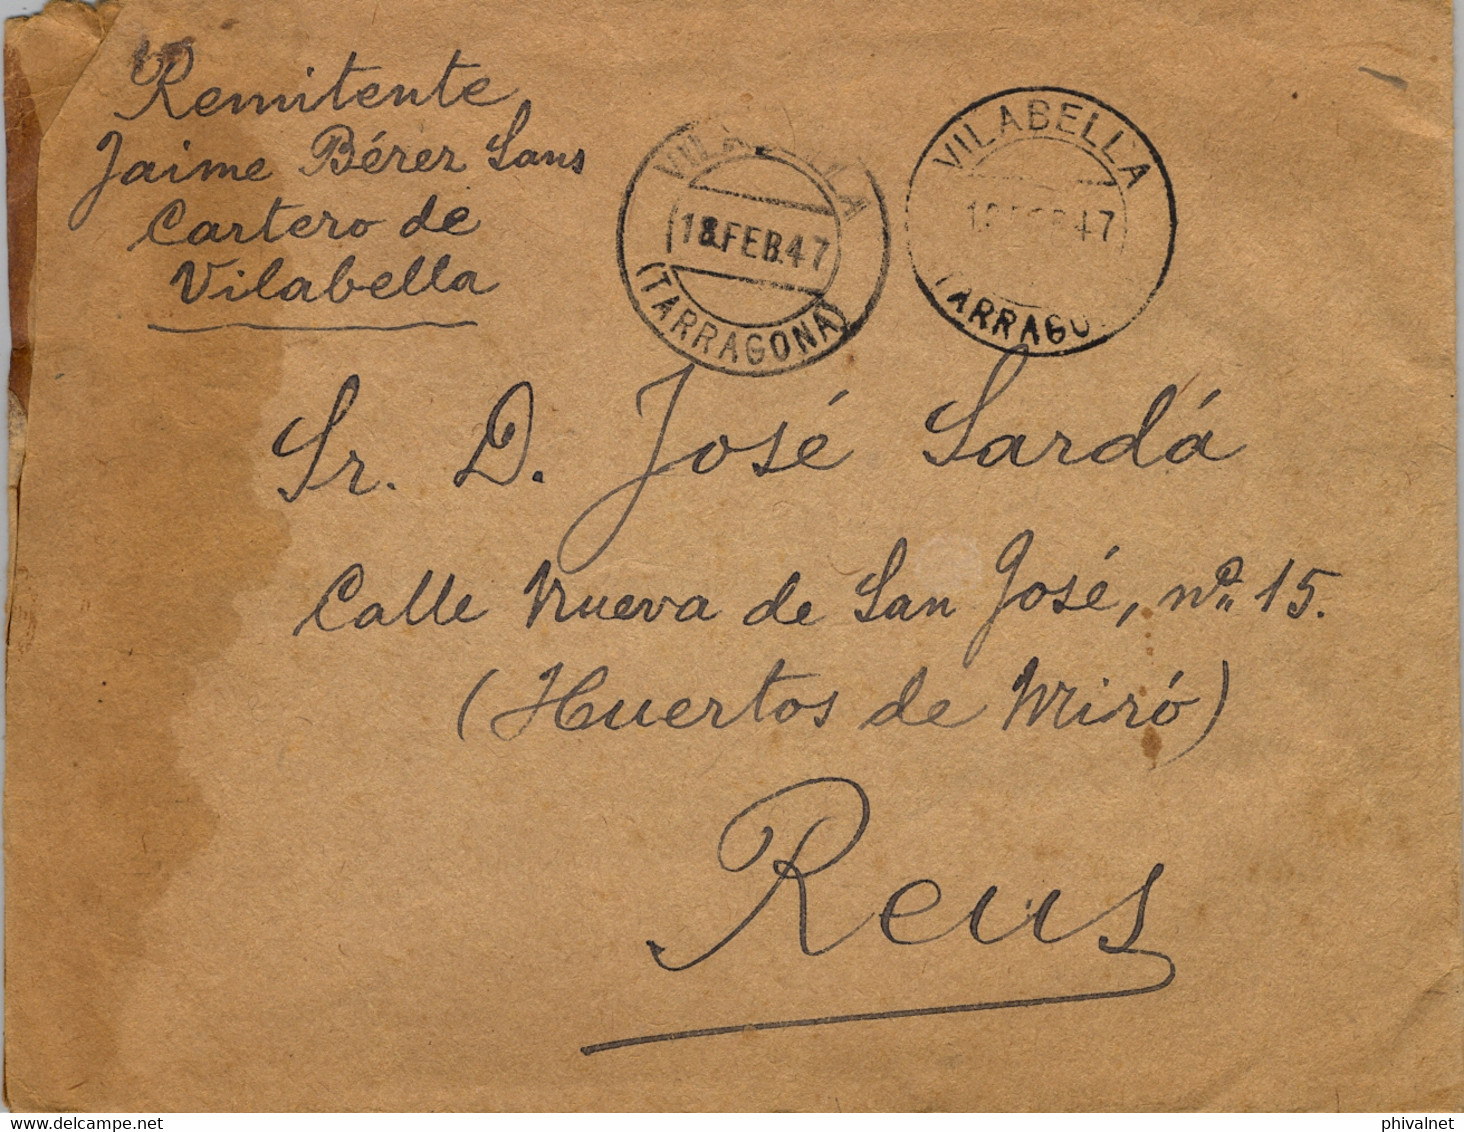 Remitente
Jaime Bérez Sans
Cartero de
Vilabella
VILABELLA
18.FEB.47
(TARRAGONA)
VILABELLA
18.FEB.47
(TARRAGO
Sr. D. José Sardá
Calle Nueva de San José, nº 15.
(Huertos de Miró)
Reus
phivalnet